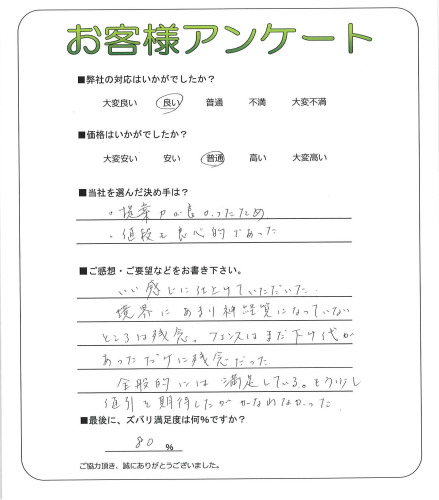 お客様アンケート
■弊社の対応はいかがでしたか？
大変良い 良い 普通 不満 大変不満
■価格はいかがでしたか？
大変安い 安い 普通 高い 大変高い
■当社を選んだ決め手は？
・提案力が良かったため
・値段も良心的であった
■ご感想・ご要望などをお書き下さい。
いい感じに仕上げていただいた。
境界にあまり神経質になっていない
ところは残念。フェンスはまだ下げ代が
あっただけに残念だった
全般的には満足している。もう少し
値引を期待したがかなわなかった。
■最後に、ズバリ満足度は何％ですか？
80 %
ご協力頂き、誠にありがとうございました。